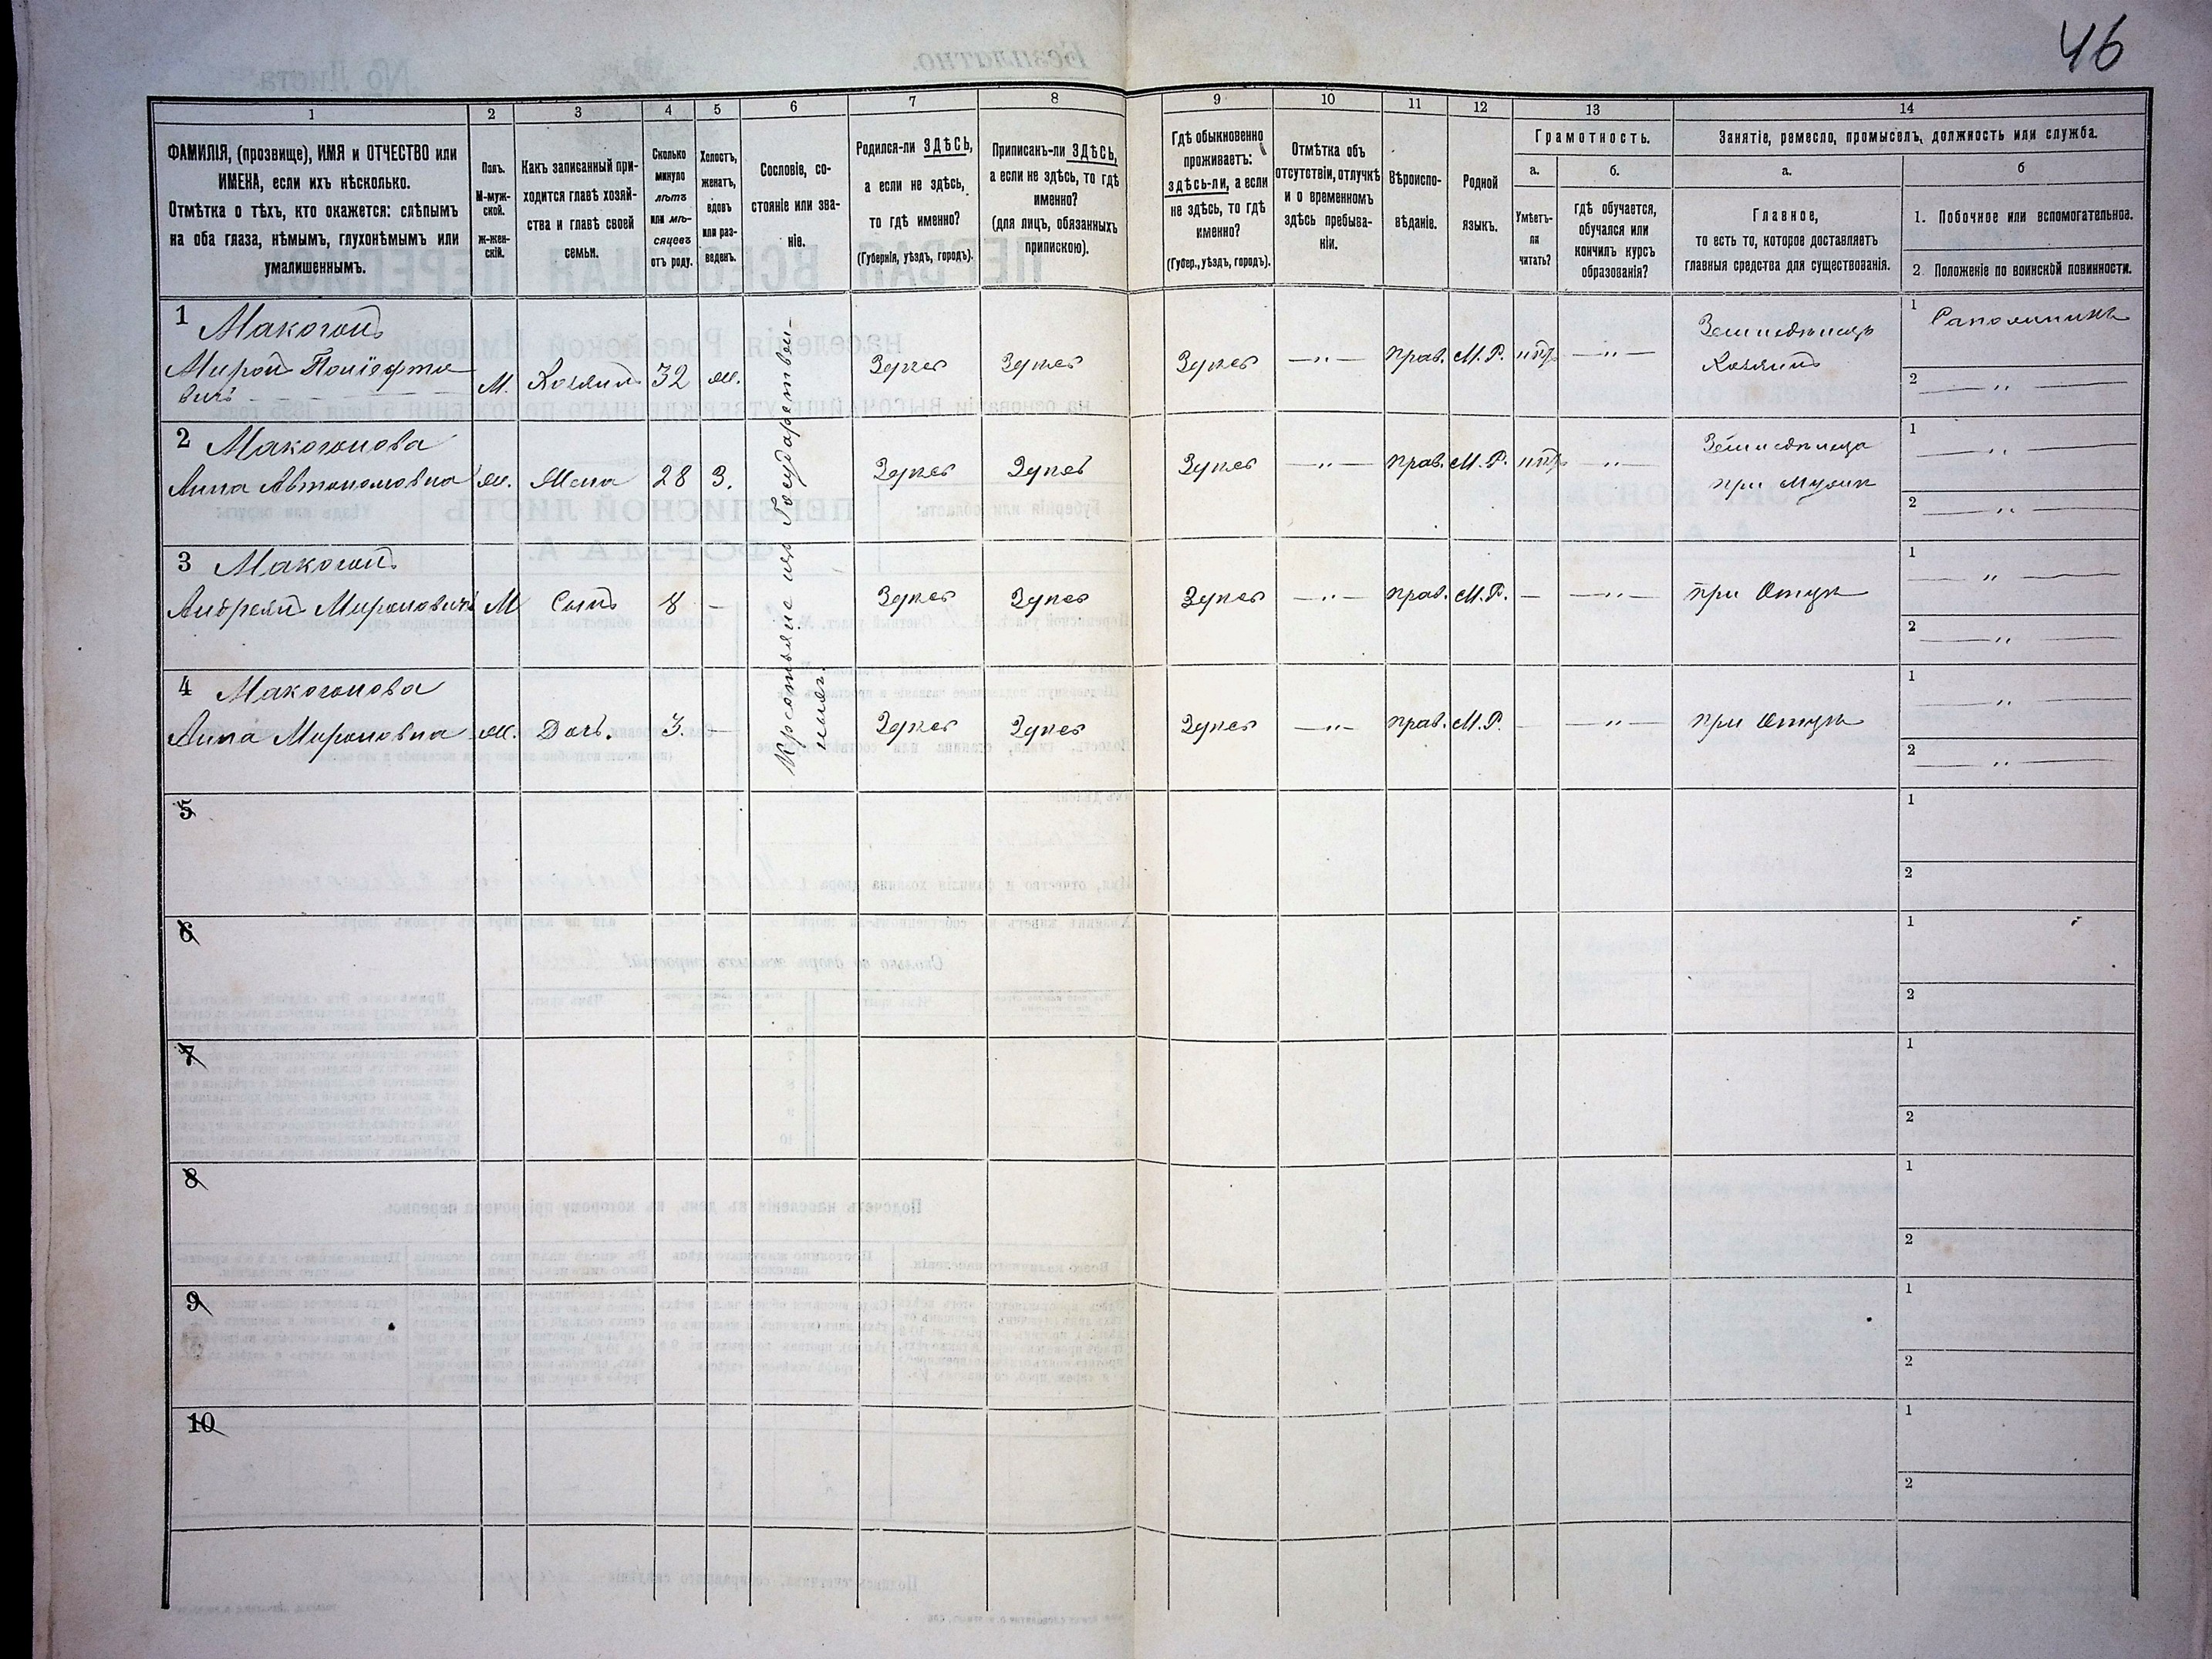 46
1 2 3 4 5 6 7 8 9 10 11 12 13 14
ФАМИЛІЯ, (прозвище), ИМЯ и ОТЧЕСТВО или
ИМЕНА, если ихъ нѣсколько.
Отмѣтка о тѣхъ, кто окажется: слѣпымъ
на оба глаза, нѣмымъ, глухонѣмымъ или
умалишеннымъ.
Полъ.
М-муж-
ской.
Ж-жен-
скій.
Какъ записанный при-
ходится главѣ хозяй-
ства и главѣ своей
семьи.
Сколько
минуло
лѣтъ
или мѣ-
сяцевъ
отъ роду.
Холостъ,
женатъ,
вдовъ
или раз-
веденъ.
Сословіе, со-
стояніе или зва-
ніе.
Родился-ли ЗДѢСЬ,
а если не здѣсь,
то гдѣ именно?
(Губернія, уѣздъ, городъ).
Приписанъ-ли ЗДѢСЬ,
а если не здѣсь, то гдѣ
именно?
(для лицъ, обязанныхъ
припискою).
Гдѣ обыкновенно
проживаетъ:
здѣсь-ли, а если
не здѣсь, то гдѣ
именно?
(Губер., уѣздъ, городъ).
Отмѣтка объ
отсутствіи, отлучкѣ
и о временномъ
здѣсь пребыва-
ніи.
Вѣроиспо-
вѣданіе.
Родной
языкъ.
Грамотность.
а.
Умѣетъ-
ли
читать?
б.
гдѣ обучается,
обучался или
кончилъ курсъ
образованія?
Занятіе, ремесло, промыселъ, должность или служба.
а.
Главное,
то есть то, которое доставляетъ
главныя средства для существованія.
б
1. Побочное или вспомогательное.
2. Положеніе по воинской повинности.
Крестьяне изъ Государствен-
ныхъ.
1 Макогонъ
Миронъ
вичъ
М. Хозяинъ 32 ж. Здѣсь Здѣсь Здѣсь —"— Прав. М.Р. нѣтъ —"— Земледѣлецъ
Хозяинъ
1 Сапожникъ
2 —"—
2 Макогонова
Анна Автономовна ж. Жена 28 З. Здѣсь Здѣсь Здѣсь —"— Прав. М.Р. нѣтъ —"— Земледѣлица
при Мужѣ
1 —"—
2 —"—
3 Макогонъ
Андрей Мироновичъ М Сынъ 8 — Здѣсь Здѣсь Здѣсь —"— Прав. М.Р. — —"— при Отцѣ
1 —"—
2 —"—
4 Макогонова
Анна Мироновна ж. Дочь. 3. — Здѣсь Здѣсь Здѣсь —"— Прав. М.Р. — —"— при Отцѣ
1 —"—
2 —"—
5
1
2
6
1
2
7
1
2
8
1
2
9
1
2
10
1
2